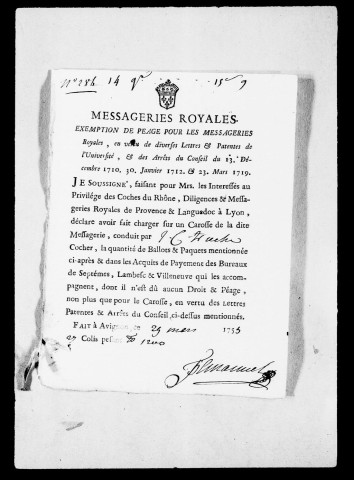 N° 284 14 15 9
MESSAGERIES ROYALES.
EXEMPTION DE PEAGE POUR LES MESSAGERIES
Royales, en vertu de diverses Lettres & Patentes de
l'Université, & des Arrêts du Conseil du 13. Dé-
cembre 1710. 30. Janvier 1712. & 23. Mars 1719.
JE SOUSSIGNÉ, faisant pour Mrs. les Interessés au
Privilége des Coches du Rhône, Diligences & Messa-
geries Royales de Provence & Languedoc à Lyon,
déclare avoir fait charger sur un Carosse de la dite
Messagerie, conduit par
Cocher, la quantité de Ballots & Paquets mentionnée
ci-après & dans les Acquits de Payement des Bureaux
de Septêmes, Lambesc & Villeneuve qui les accom-
pagnent, dont il n'est dû aucun Droit & Péage,
non plus que pour le Carosse, en vertu des Lettres
Patentes & Arrêts du Conseil, ci-dessus mentionnés.
FAIT à Avignon 29 mars 1755
27 Colis pesant 1200